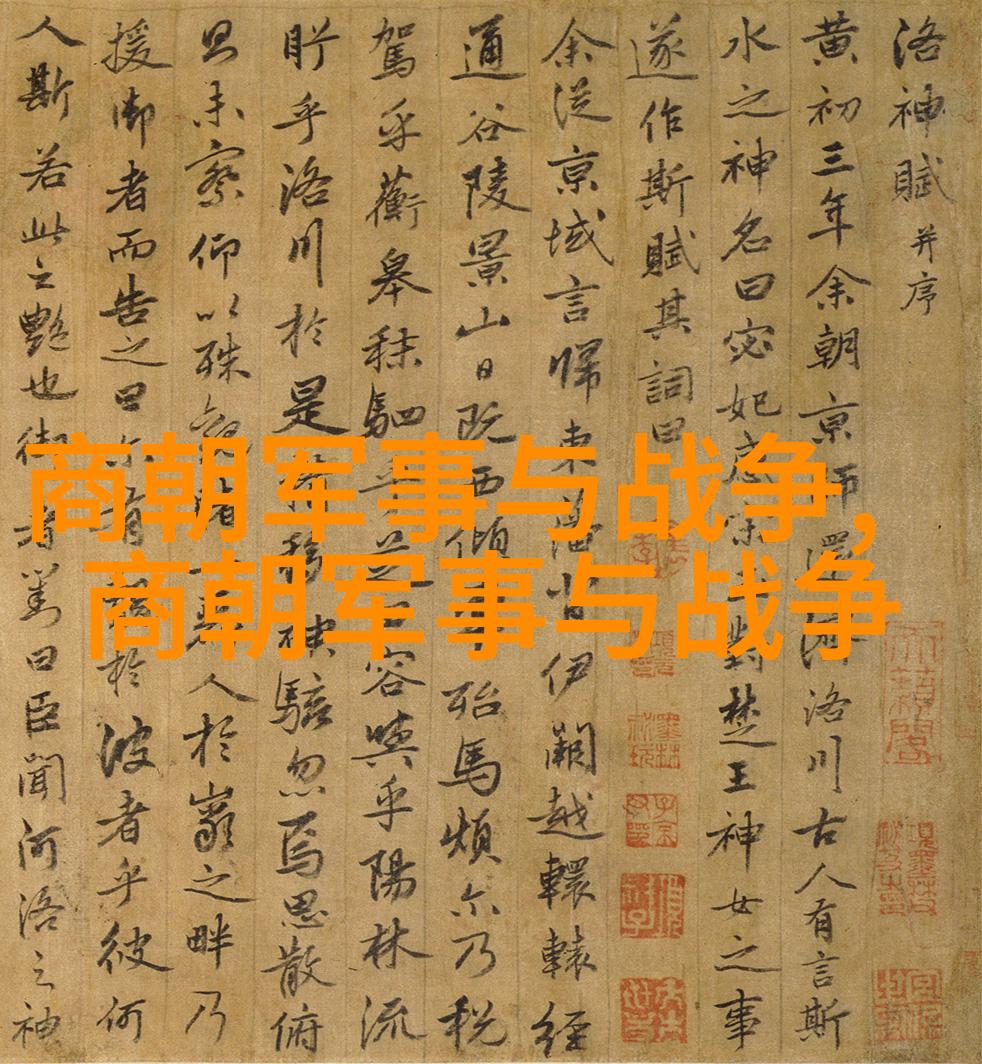 洛神賦 并序
黄初三年余朝京師還濟洛川古人有言斯
水之神名曰宓妃感宋玉對楚王神女之事
遂作斯賦其詞曰
余従京域言歸東藩背伊闕越轘轅經
通谷陵景山日既西傾車殆馬煩尓乃税
駕乎蘅皋秣駟乎芝田容與乎陽林流
眄乎洛川於是精移神駭忽焉思散俯
則未察仰以殊觀睹一麗人於巖之畔乃
援御者而告之曰尓有覿於彼者乎彼何
人斯若此之艷也御者對曰臣聞河洛之神
商朝军事与战争,
商朝军事与战争